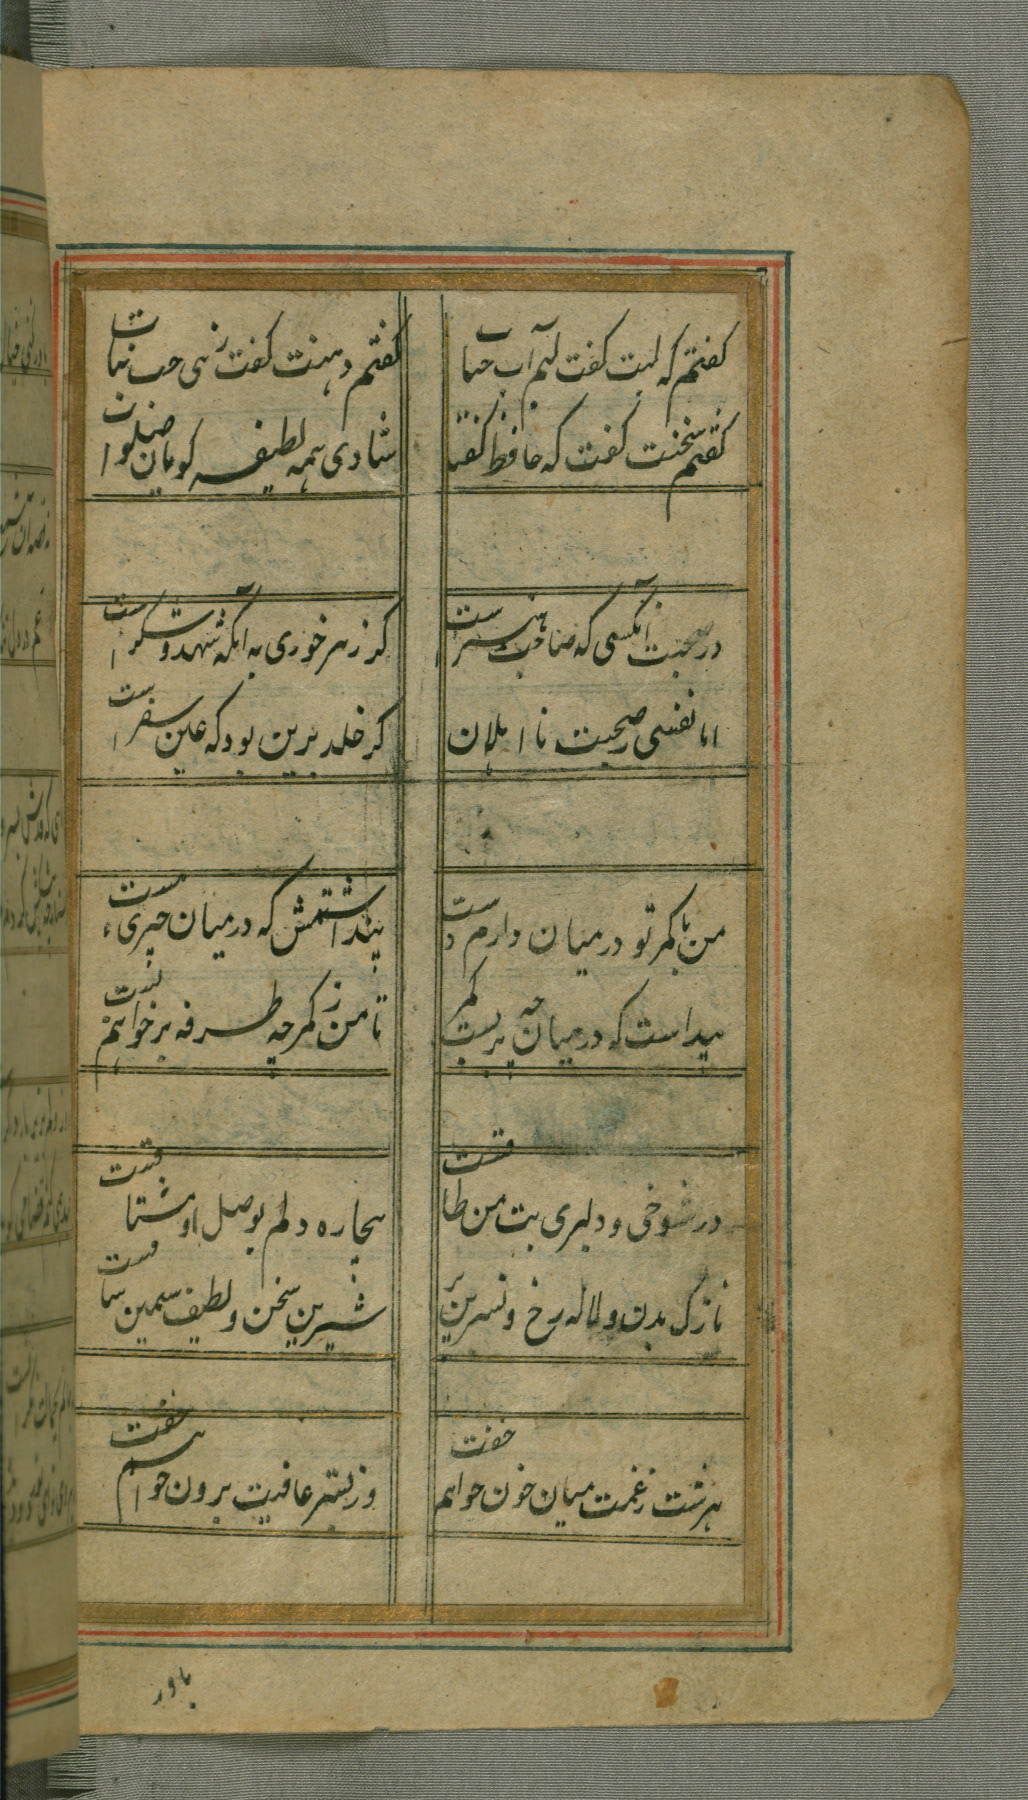 گفتم که لبت گفت لبم آب حیات
گفتم دهنت گفت زهی حب نبات
گفتم سخنت گفت که حافظ گفتا
شادی همه لطیفه گویان صلوات
در صحبت آنکسی که صاحب هنرست
گر زهر خوری به آنکه شهد و شکرست
اما نفسی صحبت نا اهلان
گر خلد برین بود که عین سقرست
من با کمر تو در میان دارم دست
پنداشتمش که در میان چیزی هست
پیداست که در میان چه بربست کمر
تا من ز کمر چه طرفه بر خواهم بست
در شوخی و دلبری بت من طاقست
بیچاره دلم بوصل او مشتاقست
نازک بدن و لاله رخ و نسرین بر
شیرین سخن و لطیف سیمین ساقست
هر شب ز غمت میان خون خواهم خفت
وز بستر عافیت برون خواهم خفت
باور